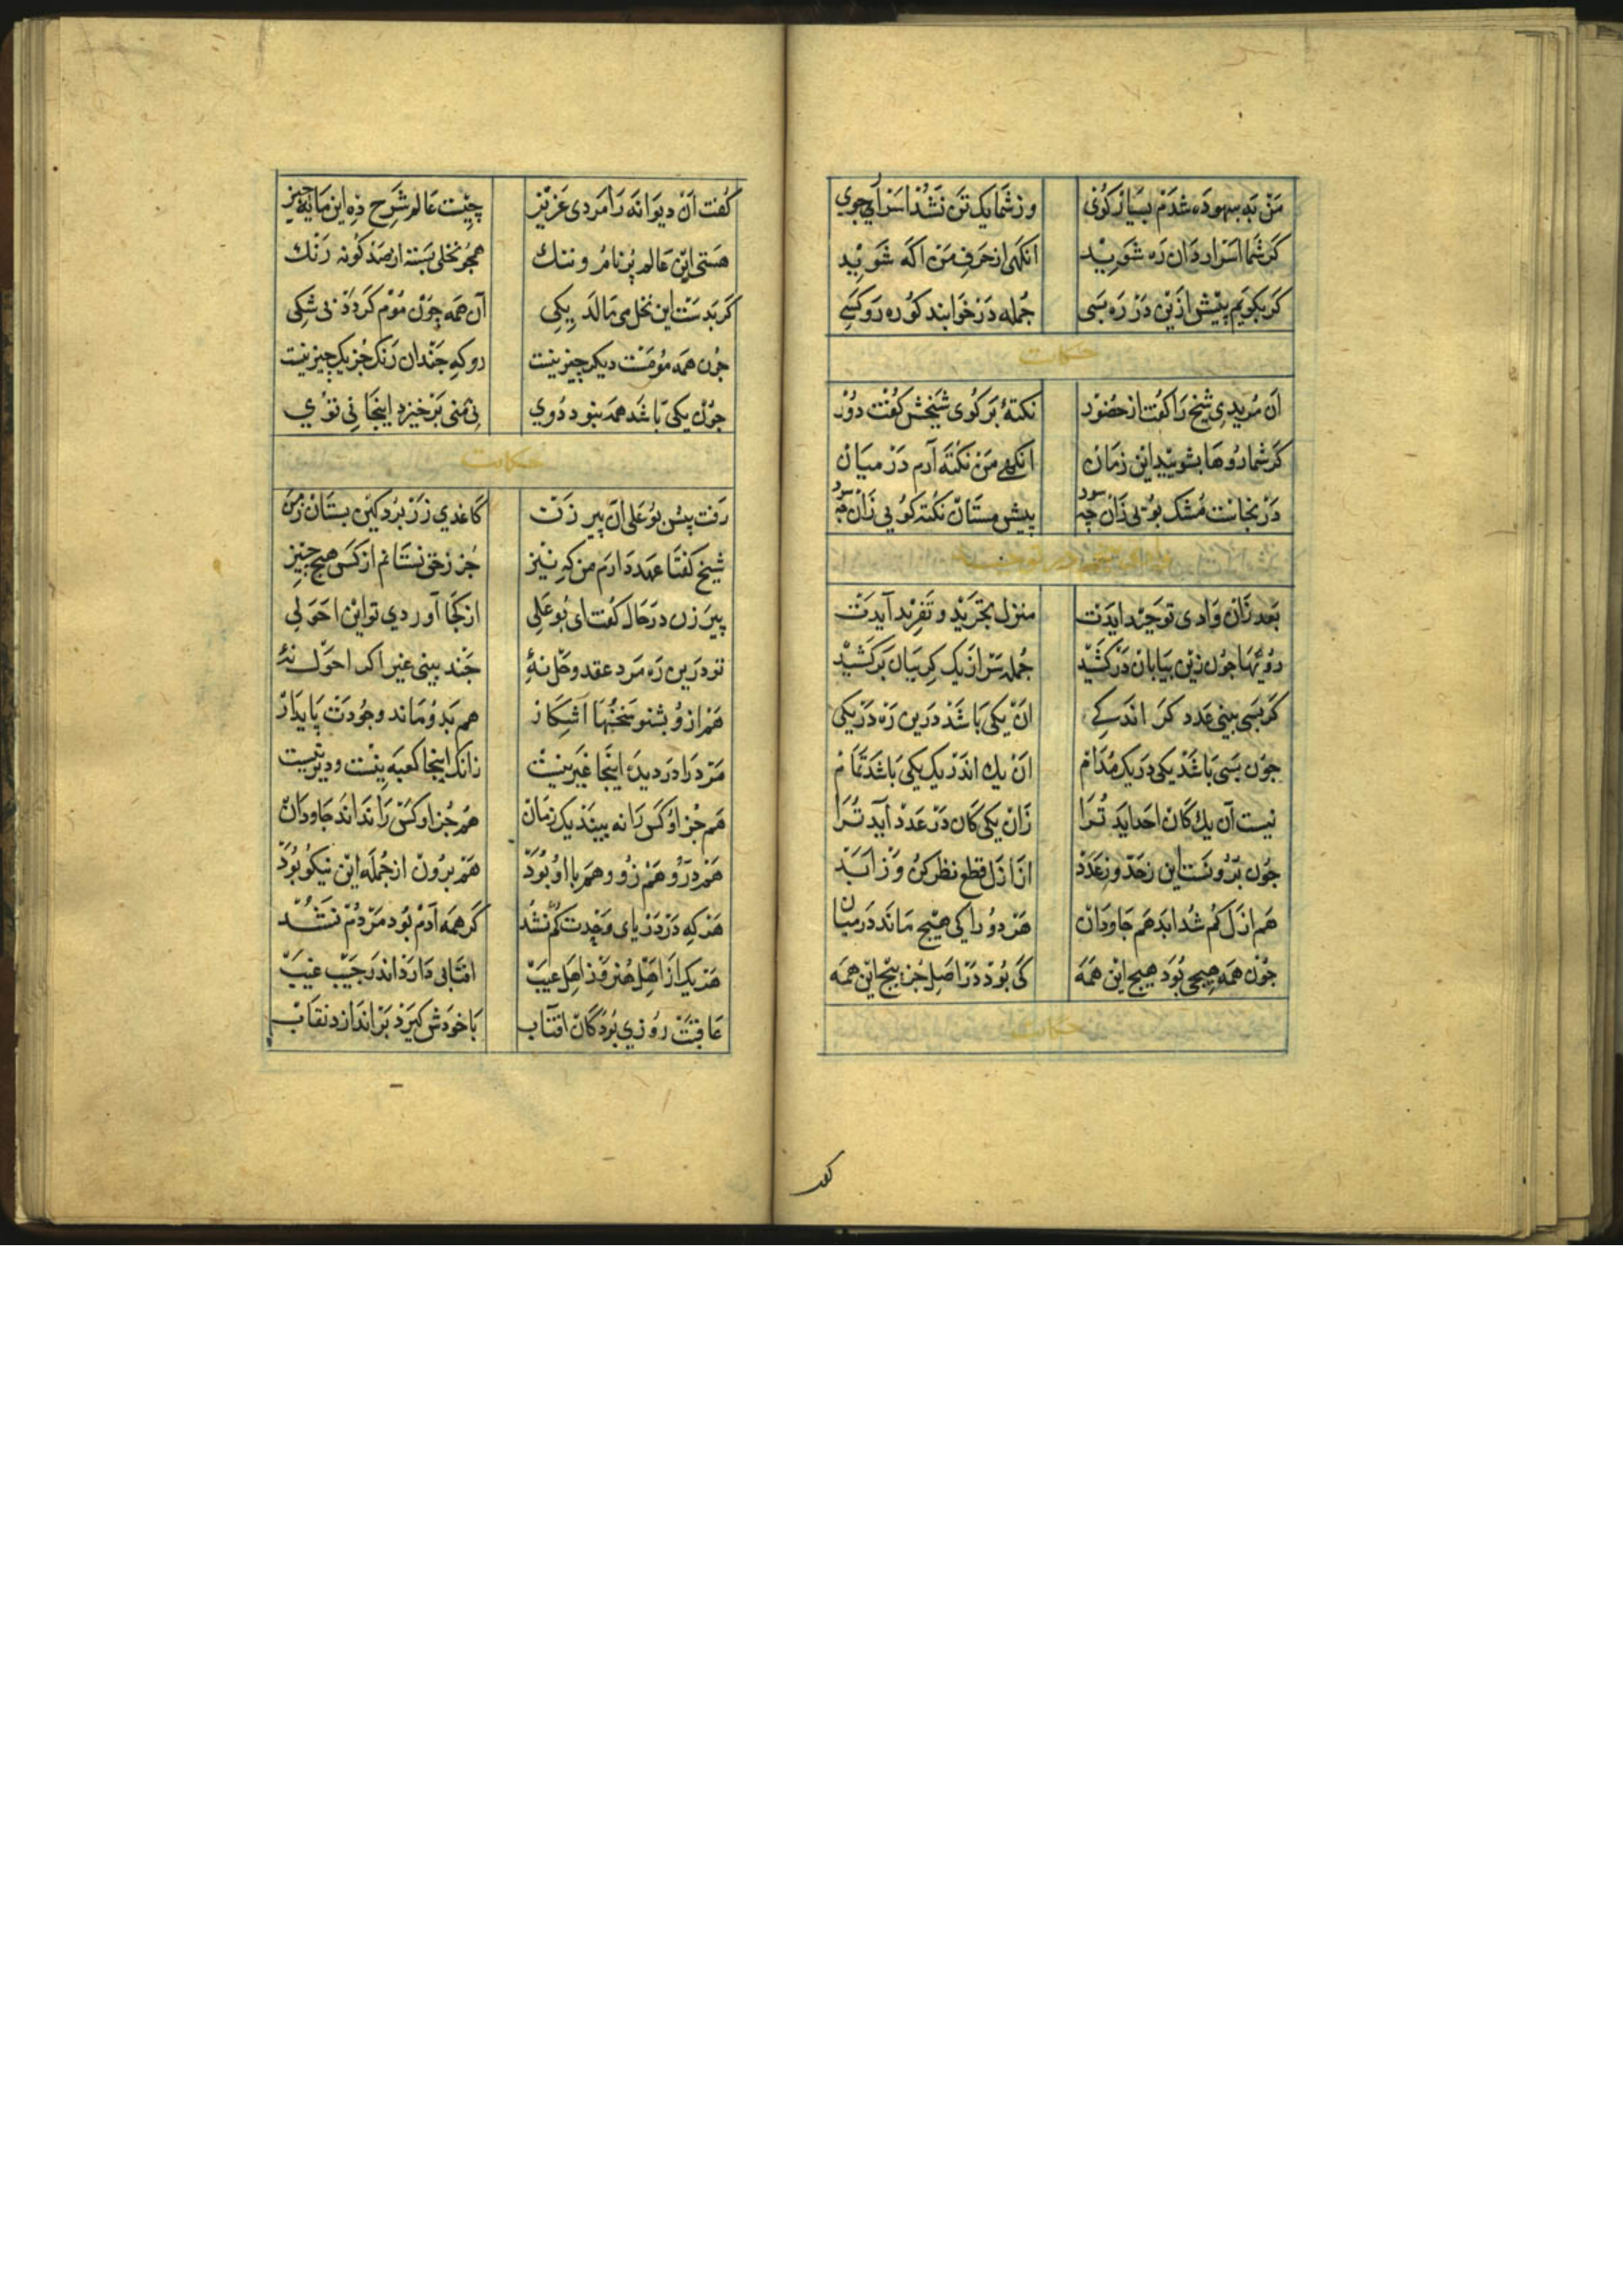 من به بیهوده شدم بسیار گوی وز شما یک تن نشد اسرار جوی
گر شما اسرار دان ره شوید انکهی از حرف من اگه شوید
گر بگویم بیش ازین در ره بسی جمله در خوابند کو ره رو کسی
حکایت
آن مریدی شیخ را گفت از حضور نکتهٔ بر گوی شیخش گفت دور
گر شما روها بشویید این زمان انکهی من نکته آرم در میان
در نجاست مشک بوئی زان چه سود پیش مستان نکته گویی زان چه سود
وادی در توحید
بعد زان وادی توحید ایدت منزل تجرید و تفرید آیدت
رویها چون زین بیابان در کشید جمله سر از یک کریبان بر کشید
گر بسی بینی عدد گر اندکی آن یکی باشد درین ره در یکی
چون بسی باشد یکی در یک مدام آن یک اندر یک یکی باشد تمام
نیست آن یک کان احد اید ترا زان یکی کان در عدد آید ترا
چون برونست این زحد وز عدد از ازل قطع نظر کن وز ابد
هم ازل گم شد ابد هم جاودان هر دو را کی هیچ ماند در میان
چون همه هیچی بود هیچ این همه کی بود در اصل جز پیچ این همه
حکایت
گفت
گفت آن دیوانه را مردی عزیز چیست عالم شرح ده این مایه چیز
هستی این عالم پر نام و ننک همچو نخلی بسته از صد گونه رنک
گر بدست این نخل می مالد یکی آن همه چون موم گردد بی شکی
چون همه مومست دیگر چیز نیست رو که چندان رنک جز یک چیز نیست
چون یکی باشد همه نبود دوی نی منی بر خیزد اینجا نی توی
حکایت
رفت پیش بو علی آن پیر زن کاغدی زر برد کین بستان زمن
شیخ گفتا عهد دارم من که نیز جز زحق نستانم از کس هیچ چیز
پیر زن در حال گفت ای بو علی از کجا آوردی تو این احولی
تو درین ره مرد عقد و حل نهٔ چند بینی غیر اکر احول نهٔ
مرد را در دیده اینجا غیر نیست زانک اینجا کعبه نیست و دیر نیست
هم ازو بشنو سخنها آشکار هم بدو ماند وجودت پایدار
هم جز او کس را نه بیند یک زمان هم جز او کس را نداند جاودان
هم درو هم زو و هم با او بود هم برون از جمله این نیکو بود
هر که در دریای وحدت گم نشد گر همه آدم بود مردم نشد
هر یک از اهل هنر وز اهل عیب افتابی دارد اندر جیب غیب
عاقبت روزی بود کان افتاب با خودش گیرد بر اندازد نقاب